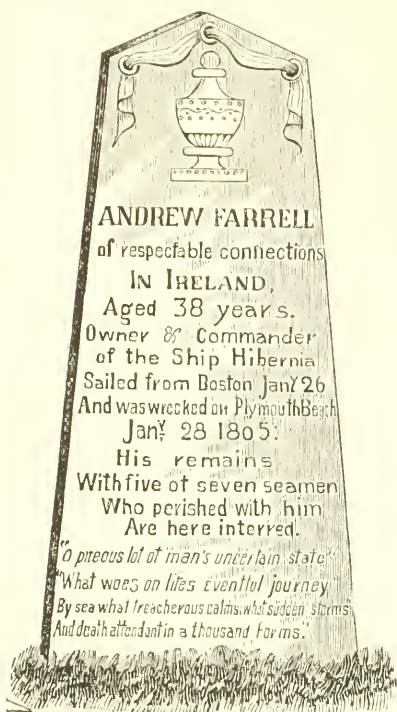 ANDREW FARRELL
of respectable connections
IN IRELAND,
Aged 38 years.
Owner & Commander
of the Ship Hibernia
Sailed from Boston Jany 26
And was wrecked on Plymouth Beach
Jany. 28 1805:
His remains
With five of seven seamen
Who perished with him
Are here interred.
"O piteous lot of man's uncertain state"
"What woes on lifes Eventful journey
By sea what treacherous calms, what sudden storms
And death attendant in a thousand forms."